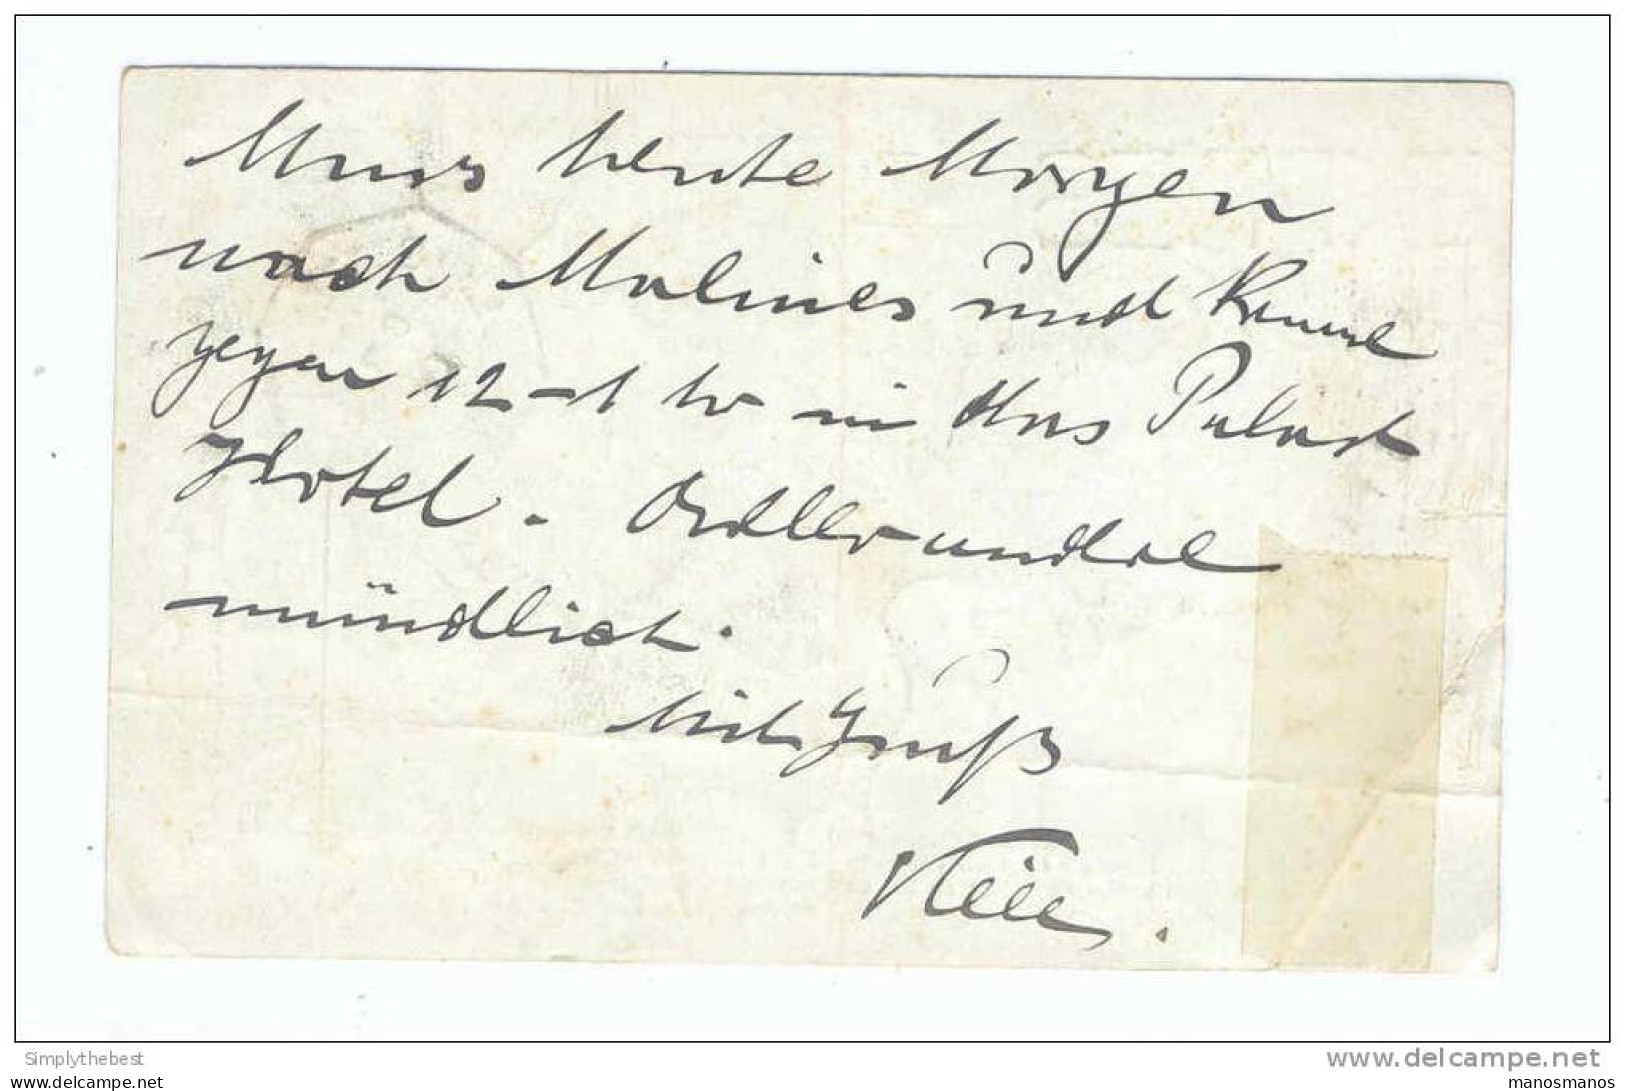 Muss heute Morgen
nach Malines und komme
gegen 12-1 h in das Palast
Hotel.
mündlich.
Mit Gruß
Simplythebest
www.delcampe.net
manosmanos